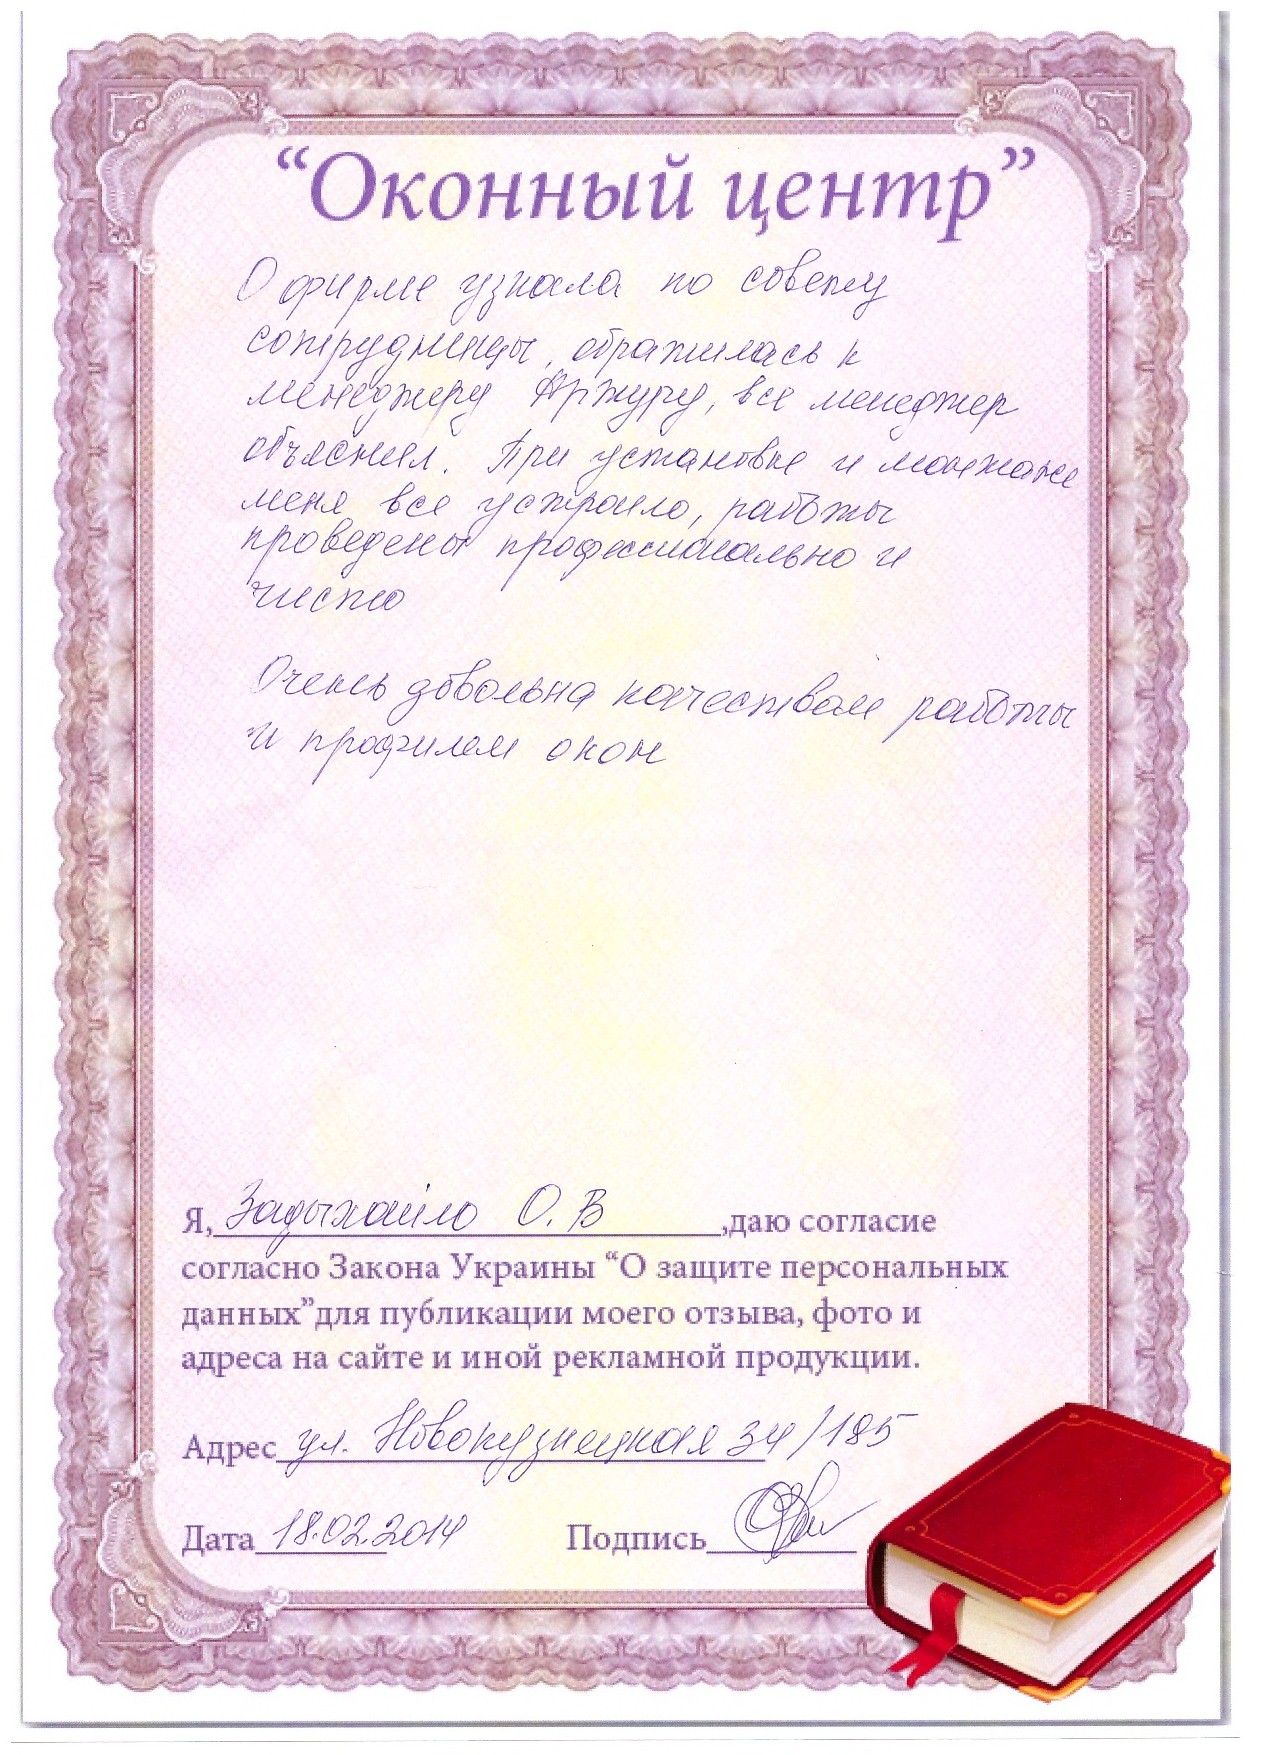 “Оконный центр”
О фирме узнала по совету
сотрудницы, обратилась к
менеджеру Артуру, все менеджер
объяснил. При установке и монтаже
меня все устроило, работы
проведены профессионально и
чисто
Очень довольна качеством работы
и профилем окон
Я, Задыхайло О. В ,даю согласие
согласно Закона Украины “О защите персональных
данных”для публикации моего отзыва, фото и
адреса на сайте и иной рекламной продукции.
Адрес ул. Новокузнецкая 34/185
Дата 18.02.2014 Подпись